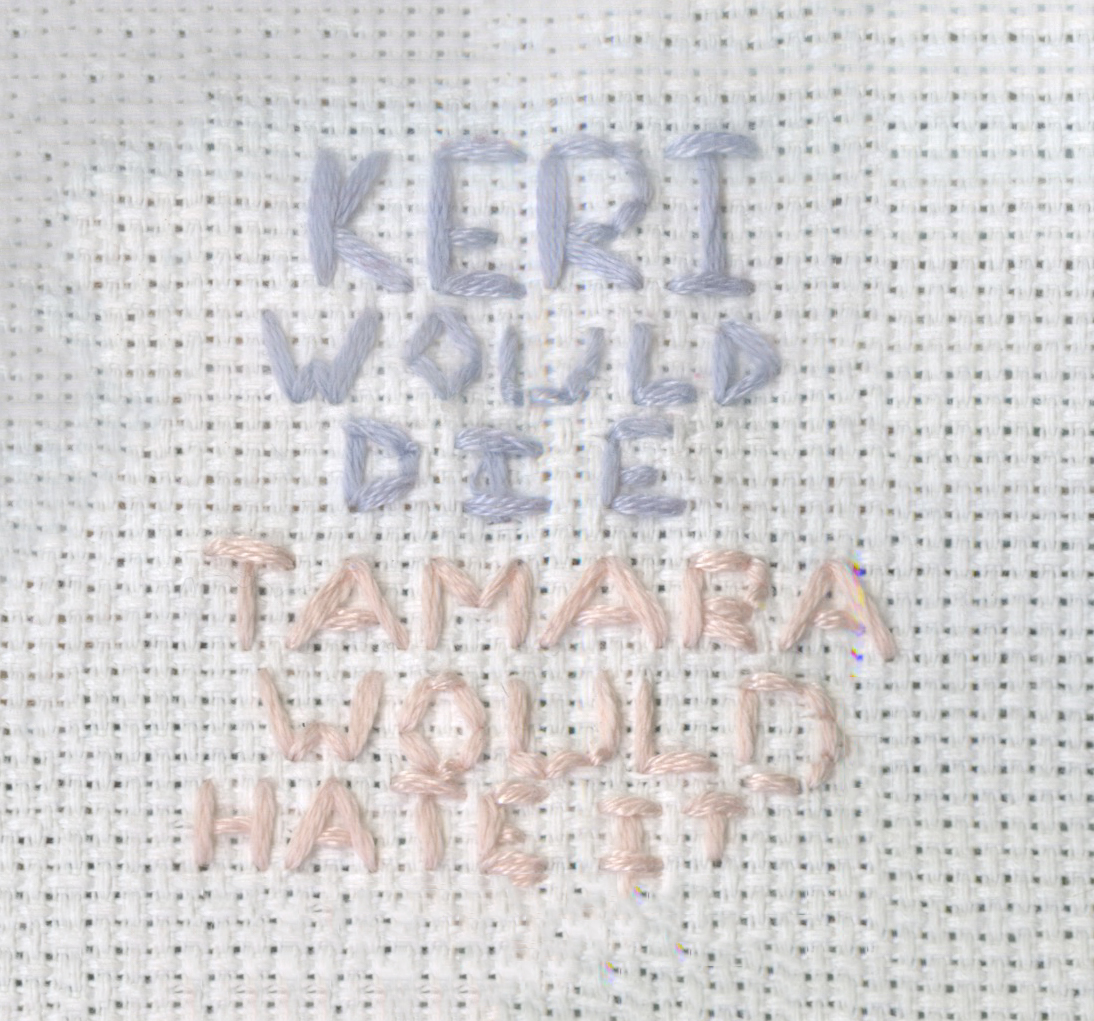 KERI
WOULD
DIE
TAMARA
WOULD
HATE IT